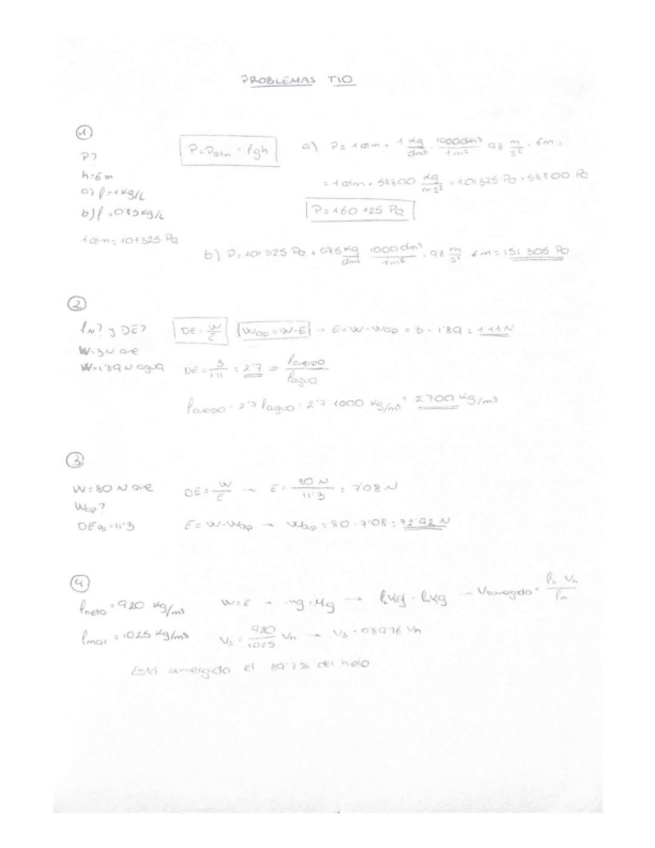 PROBLEMAS T10
①
P?
h=6m
a) ρ=1kg/L
b) ρ=0'85kg/L
1atm=101325 Pa
P=Patm + ρgh
a) P= 1atm + 1 kg/dm³ · 1000dm³/1m³ · 9'8 m/s² · 6m =
= 1atm + 58800 kg/ms² = 101325 Pa + 58800 Pa
P=160 125 Pa
b) P=101325 Pa + 0'85 kg/dm³ · 1000dm³/1m³ · 9'8 m/s² · 6m = 151 305 Pa
②
ρm? y DE?
W=3N aire
W=1'89N agua
DE= W/E
Wap=W-E → E=W-Wap = 3-1'89 = 1'11N
DE= 3/1'11 = 2'7 = ρcuerpo/ρagua
ρcuerpo = 2'7 ρagua = 2'7 · 1000 kg/m³ = 2700 kg/m³
③
W=80 N aire
Wap?
DE =11'3
DE= W/E → E= 80 N/11'3 = 7'08 N
E=W-Wap → Wap = 80-7'08 = 72'92 N
④
ρhielo = 920 kg/m³
ρmar = 1025 kg/m³
W=E → mg=Mg → Vsumergido = ρh Vh/ρm
Vs = 920/1025 Vh → Vs = 0'8976 Vh
Está sumergido el 89'7% del hielo